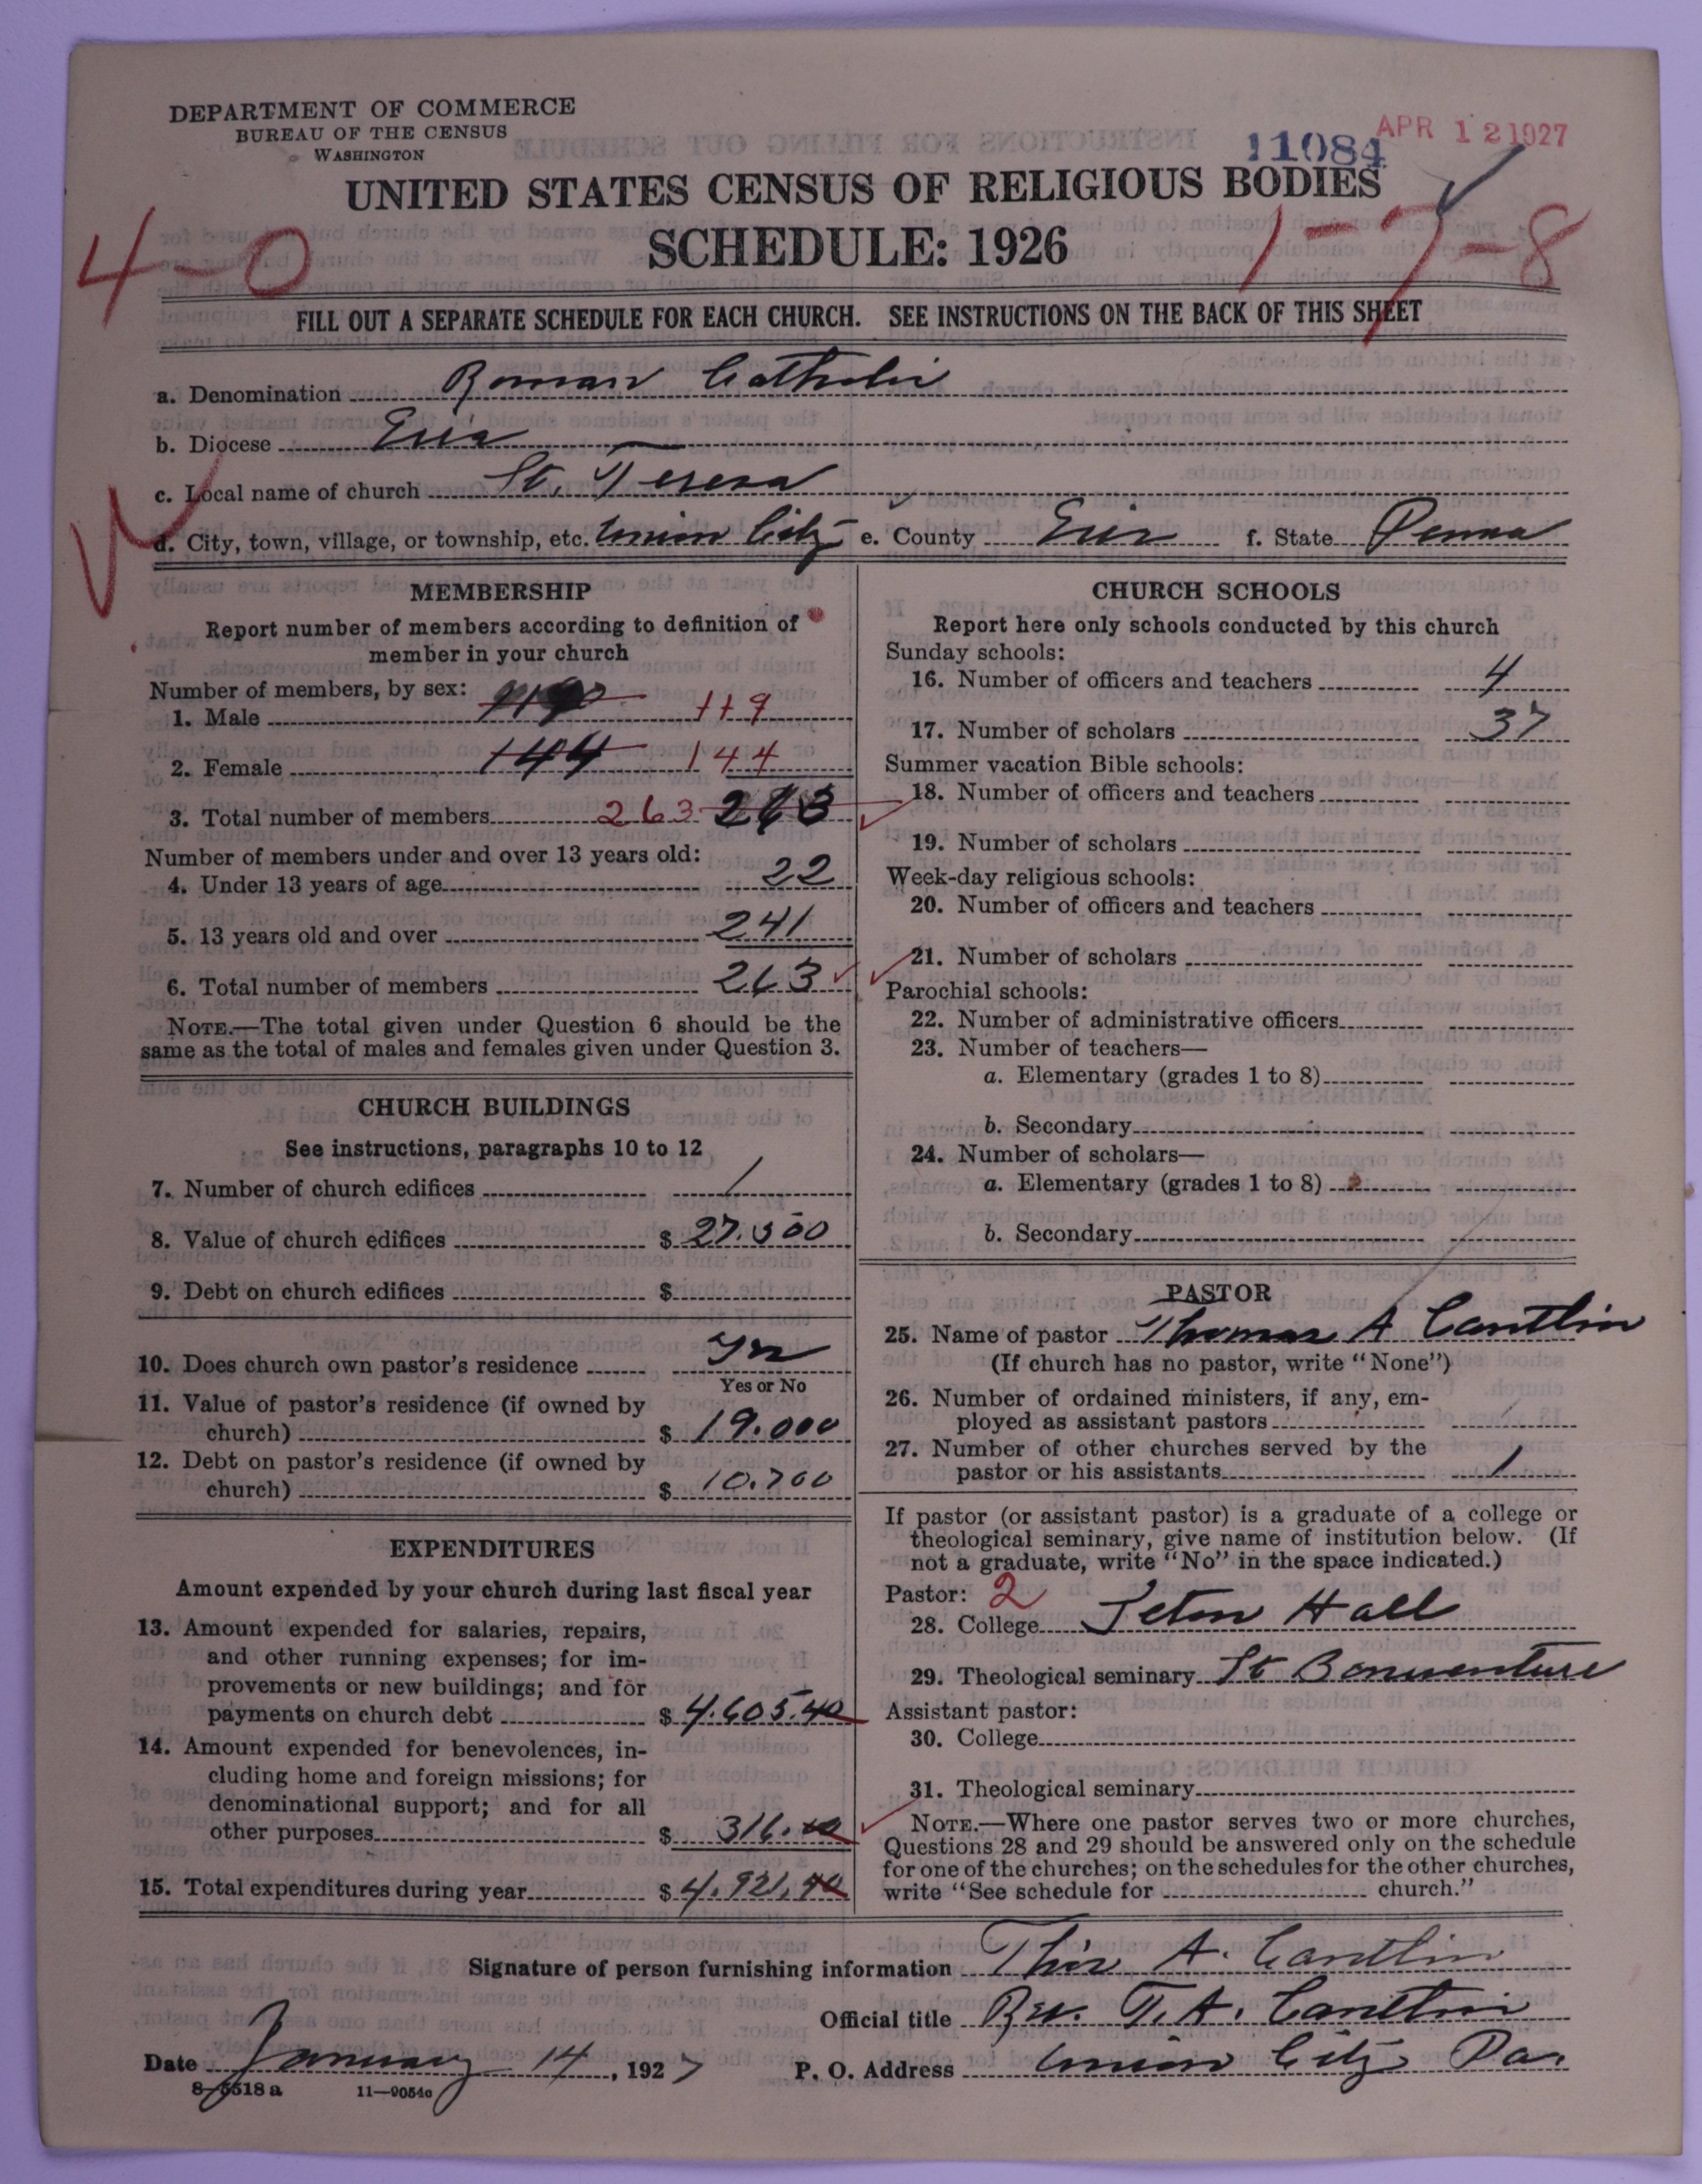 DEPARTMENT OF COMMERCE
BUREAU OF THE CENSUS
WASHINGTON
11084
APR 12 1927
UNITED STATES CENSUS OF RELIGIOUS BODIES
SCHEDULE: 1926
4-0
1-7-8
FILL OUT A SEPARATE SCHEDULE FOR EACH CHURCH. SEE INSTRUCTIONS ON THE BACK OF THIS SHEET
a. Denomination Roman Catholic
b. Diocese Erie
c. Local name of church St. Teresa
d. City, town, village, or township, etc. Union City e. County Erie f. State Penna
MEMBERSHIP
Report number of members according to definition of
member in your church
Number of members, by sex:
1. Male 119
2. Female 144 144
3. Total number of members 263 263
Number of members under and over 13 years old:
4. Under 13 years of age 22
5. 13 years old and over 241
6. Total number of members 263
NOTE.—The total given under Question 6 should be the
same as the total of males and females given under Question 3.
CHURCH BUILDINGS
See instructions, paragraphs 10 to 12
7. Number of church edifices 1
8. Value of church edifices $ 27.500
9. Debt on church edifices $
10. Does church own pastor's residence Yes
Yes or No
11. Value of pastor's residence (if owned by
church) $ 19.000
12. Debt on pastor's residence (if owned by
church) $ 10.700
EXPENDITURES
Amount expended by your church during last fiscal year
13. Amount expended for salaries, repairs,
and other running expenses; for im-
provements or new buildings; and for
payments on church debt $ 4.605.40
14. Amount expended for benevolences, in-
cluding home and foreign missions; for
denominational support; and for all
other purposes $ 316.00
15. Total expenditures during year $ 4.921.40
CHURCH SCHOOLS
Report here only schools conducted by this church
Sunday schools:
16. Number of officers and teachers 4
17. Number of scholars 37
Summer vacation Bible schools:
18. Number of officers and teachers
19. Number of scholars
Week-day religious schools:
20. Number of officers and teachers
21. Number of scholars
Parochial schools:
22. Number of administrative officers
23. Number of teachers—
a. Elementary (grades 1 to 8)
b. Secondary
24. Number of scholars—
a. Elementary (grades 1 to 8)
b. Secondary
PASTOR
25. Name of pastor Thomas A Cantlin
(If church has no pastor, write "None")
26. Number of ordained ministers, if any, em-
ployed as assistant pastors
27. Number of other churches served by the
pastor or his assistants 1
If pastor (or assistant pastor) is a graduate of a college or
theological seminary, give name of institution below. (If
not a graduate, write "No" in the space indicated.)
Pastor: 2
28. College Seton Hall
29. Theological seminary St Bonaventure
Assistant pastor:
30. College
31. Theological seminary
NOTE.—Where one pastor serves two or more churches,
Questions 28 and 29 should be answered only on the schedule
for one of the churches; on the schedules for the other churches,
write "See schedule for church."
Signature of person furnishing information Thos A. Cantlin
Official title Rev. T. A. Cantlin
Date January 14, 1927 P. O. Address Union City Pa.
8-5518 a 11-9054c